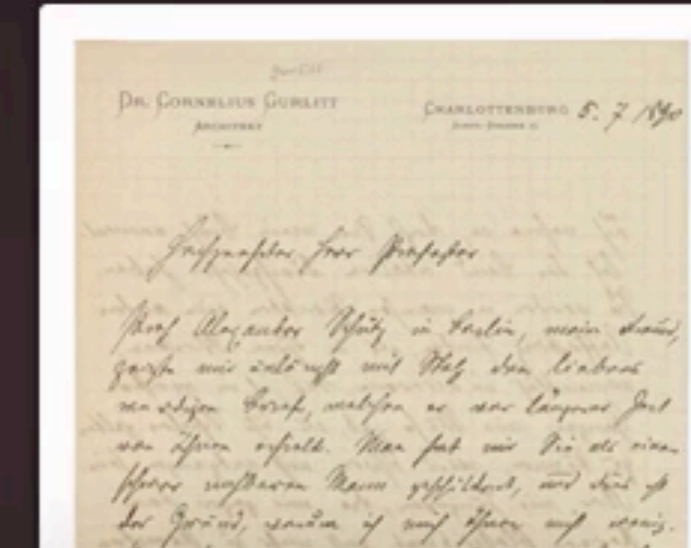 DR. CORNELIUS GURLITT
ARCHITEKT
CHARLOTTENBURG 5. 7 1890
Hochgeehrter Herr Professor
Prof Alexander Schütz in Berlin, mein Freund,
zeigte mir unlängst mit Stolz den liebens
würdigen Brief, welchen er vor längerer Zeit
von Ihnen erhielt. Man hat mir Sie als einen
schwer nahbaren Mann geschildert, und dies ist
der Grund, warum ich mich Ihnen nicht